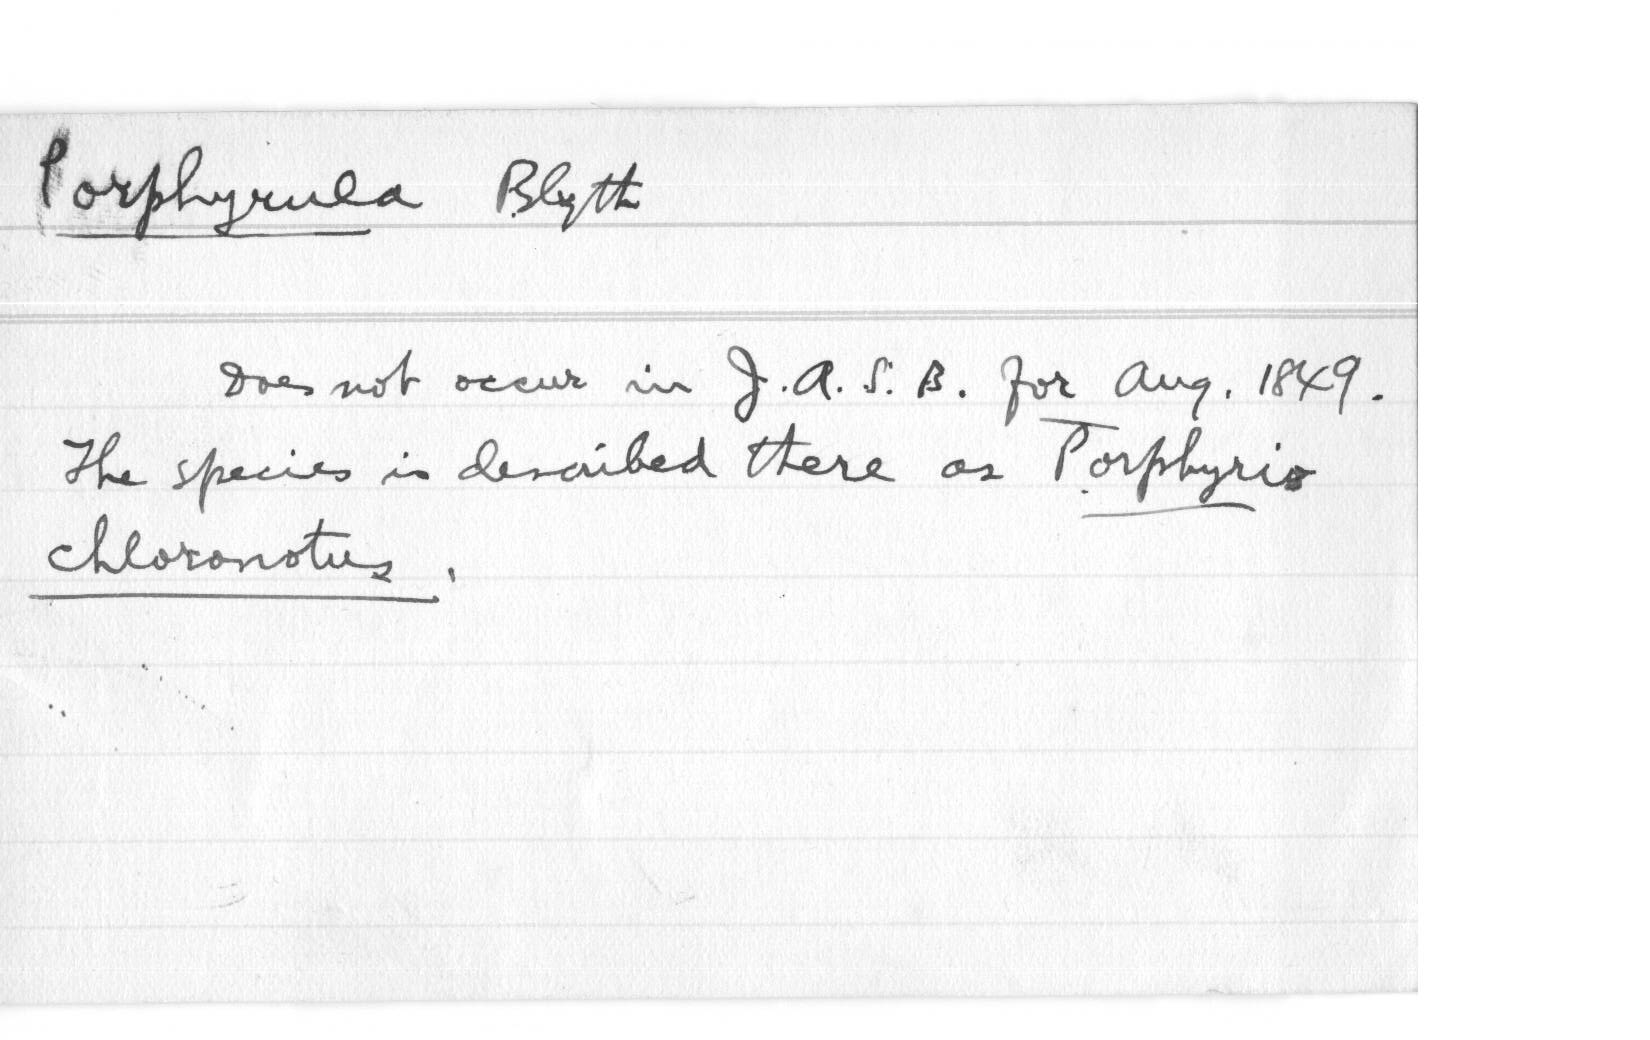 Porphyrula Blyth
Does not occur in J.A.S.B. for Aug. 1849.
The species is described there as Porphyrio
chloronotus.